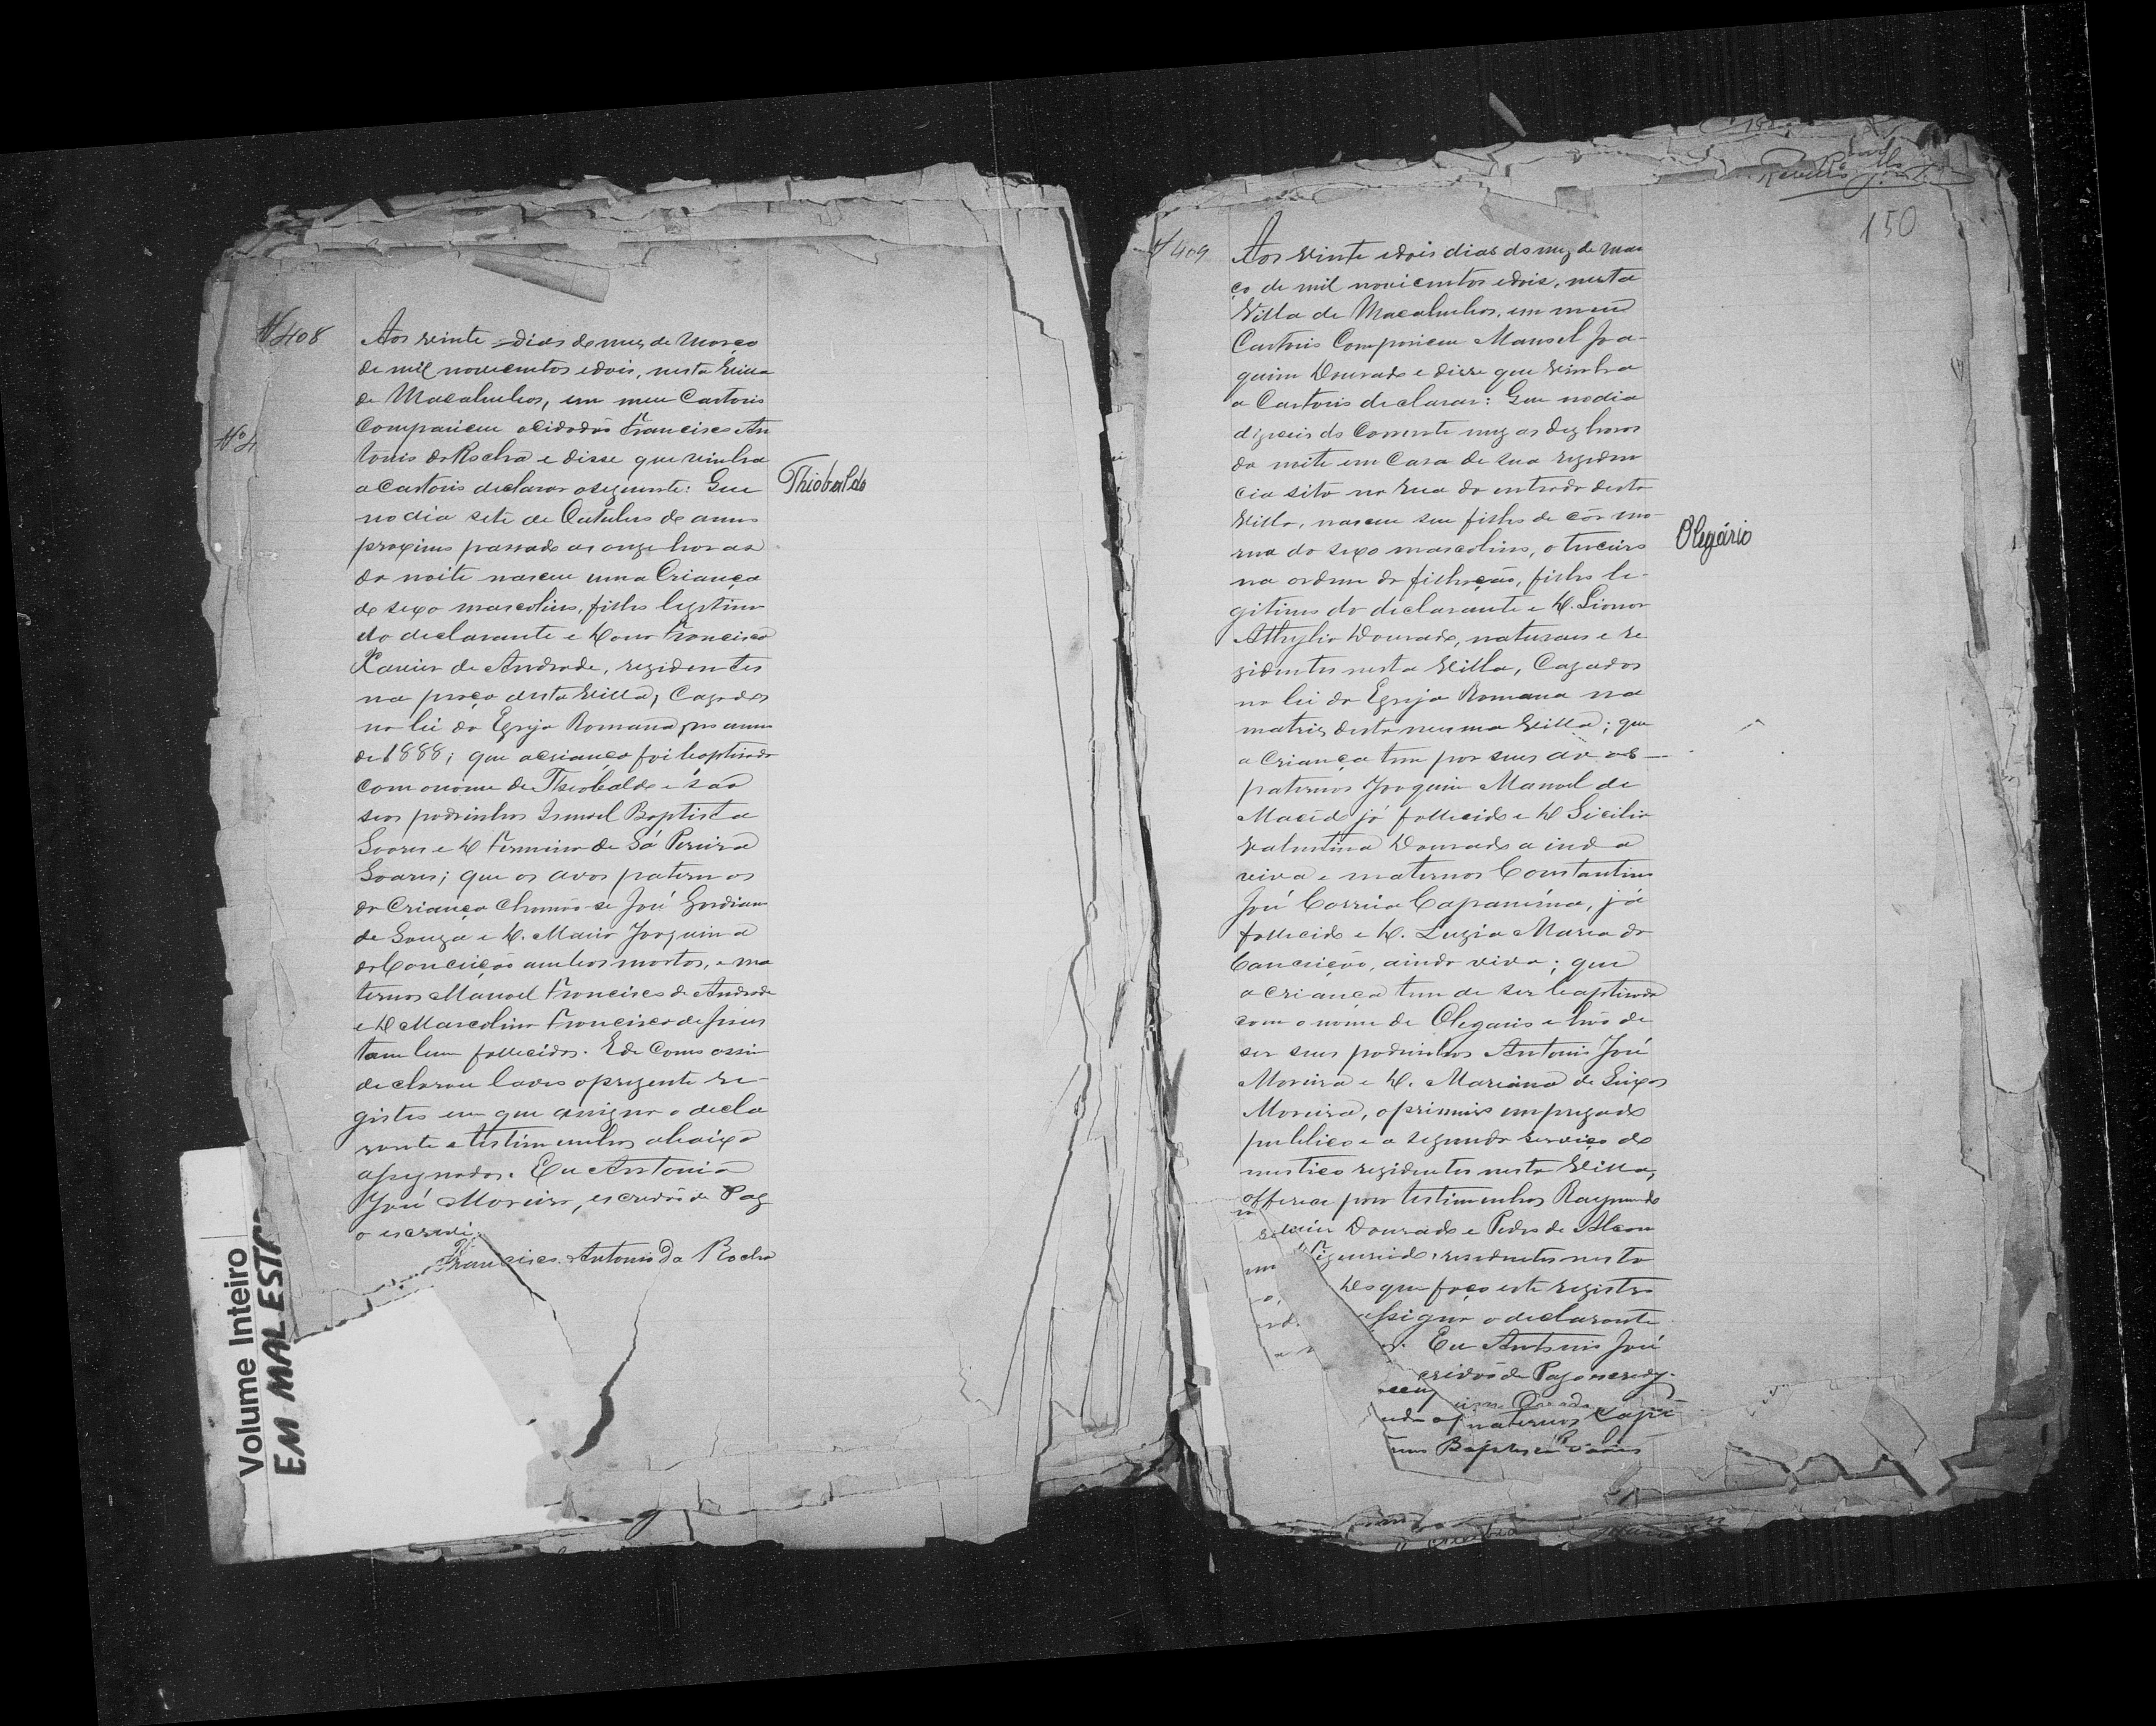 Nº 408
Aos vinte dias do mez de Março
de mil novecentos e dois, nesta Villa
de Macahubas, em meu Cartorio
Compareceu o cidadão Francisco An
tonio da Rocha e disse que vinha
a Cartorio declarar o seguinte: Que
no dia sete de Outubro do anno
proximo passado as onze horas
da noite nasceu uma Criança
do sexo masculino, filho legitimo
do declarante e Dona Francisca
Xavier de Andrade, rezidentes
na praça desta Villa, Cazados
na lei da Egreja Romana, no anno
de 1888; que a criança foi baptisada
com o nome de Theobaldo e são
seos padrinhos Ismael Baptista
Soares e D. Fermina de Sá Pereira
Soares; que os avos paternos
da Criança chamão-se José Gordiano
de Souza e D. Maria Joaquina
da Conceição ambos mortos, e ma
ternos Manoel Francisco de Andrade
e D. Marcolina Francisca de Jesus
tambem fallecidos. E de como assim
declarou lavro o prezente re-
gistro em que assigna o decla
rante e testimunhas abaixo
assignados. Eu Antonio
José Moreira, escrivão de Paz
o escrevi.
Francisco Antonio Da Rocha
Thiobaldo
Volume Inteiro
EM MAL ESTA
150
Nº 409
Aos vinte e dois dias do mez de Mar
ço de mil novicentos e dois, nesta
Villa de Macahubas, em meu
Cartorio Compareceu Manoel Joa-
quim Dourado e disse que vinha
a Cartorio declarar: Que no dia
dizeseis do Corrente mez as dez horas
da noite em Casa de sua reziden
cia sita na Rua da entrada desta
Villa, nasceu seu filho de côr mo-
rena do sexo masculino, o terceiro
na ordem da filiação, filho le-
gitimo do declarante e D. Lionor
Dourado, naturaes e re
zidentes nesta Villa, Cazados
na lei da Egreja Romana na
matriz desta mesma Villa; que
a Criança tem por seus avos
paternos Joaquim Manoel de
Macêdo já fallecido e D. Sicilia
Valentina Dourado ainda
viva e maternos Constantino
José Corrêia Capanêma, já
fallecido e D. Luzia Maria da
Conceição, ainda viva; que
a criança tem de ser baptisada
com o nome de Olegario e hão de
ser seus padrinhos Antonio José
Moreira e D. Mariana de Seixas
Moreira, o primeiro empregado
publico e a segunda serviço do
mestico rezidentes nesta Villa,
offerece por testimunhas Raymundo
Dourado e Pedro de Alcan
rezidentes nesta
Do que faço este registro
assigna o declarante
Eu Antonio José
crivão de Paz o escrevy.
maternos
Olegário